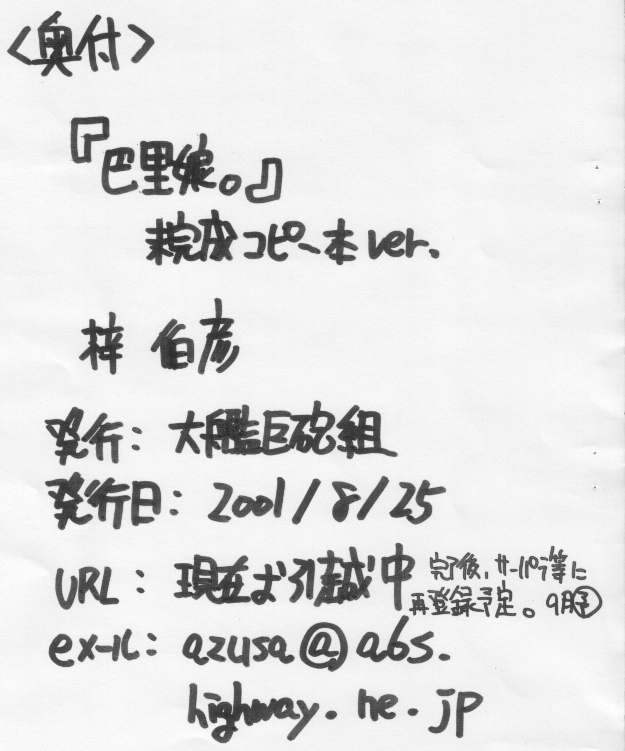 <奥付>
『巴里娘。』
未完成コピー本ver.
梓 伯彦
発行: 大艦巨砲組
発行日: 2001/8/25
URL: 現在お引越中 完了後、サーパラ等に
再登録予定。9月予
eメール: azusa@a6s.
highway.ne.jp